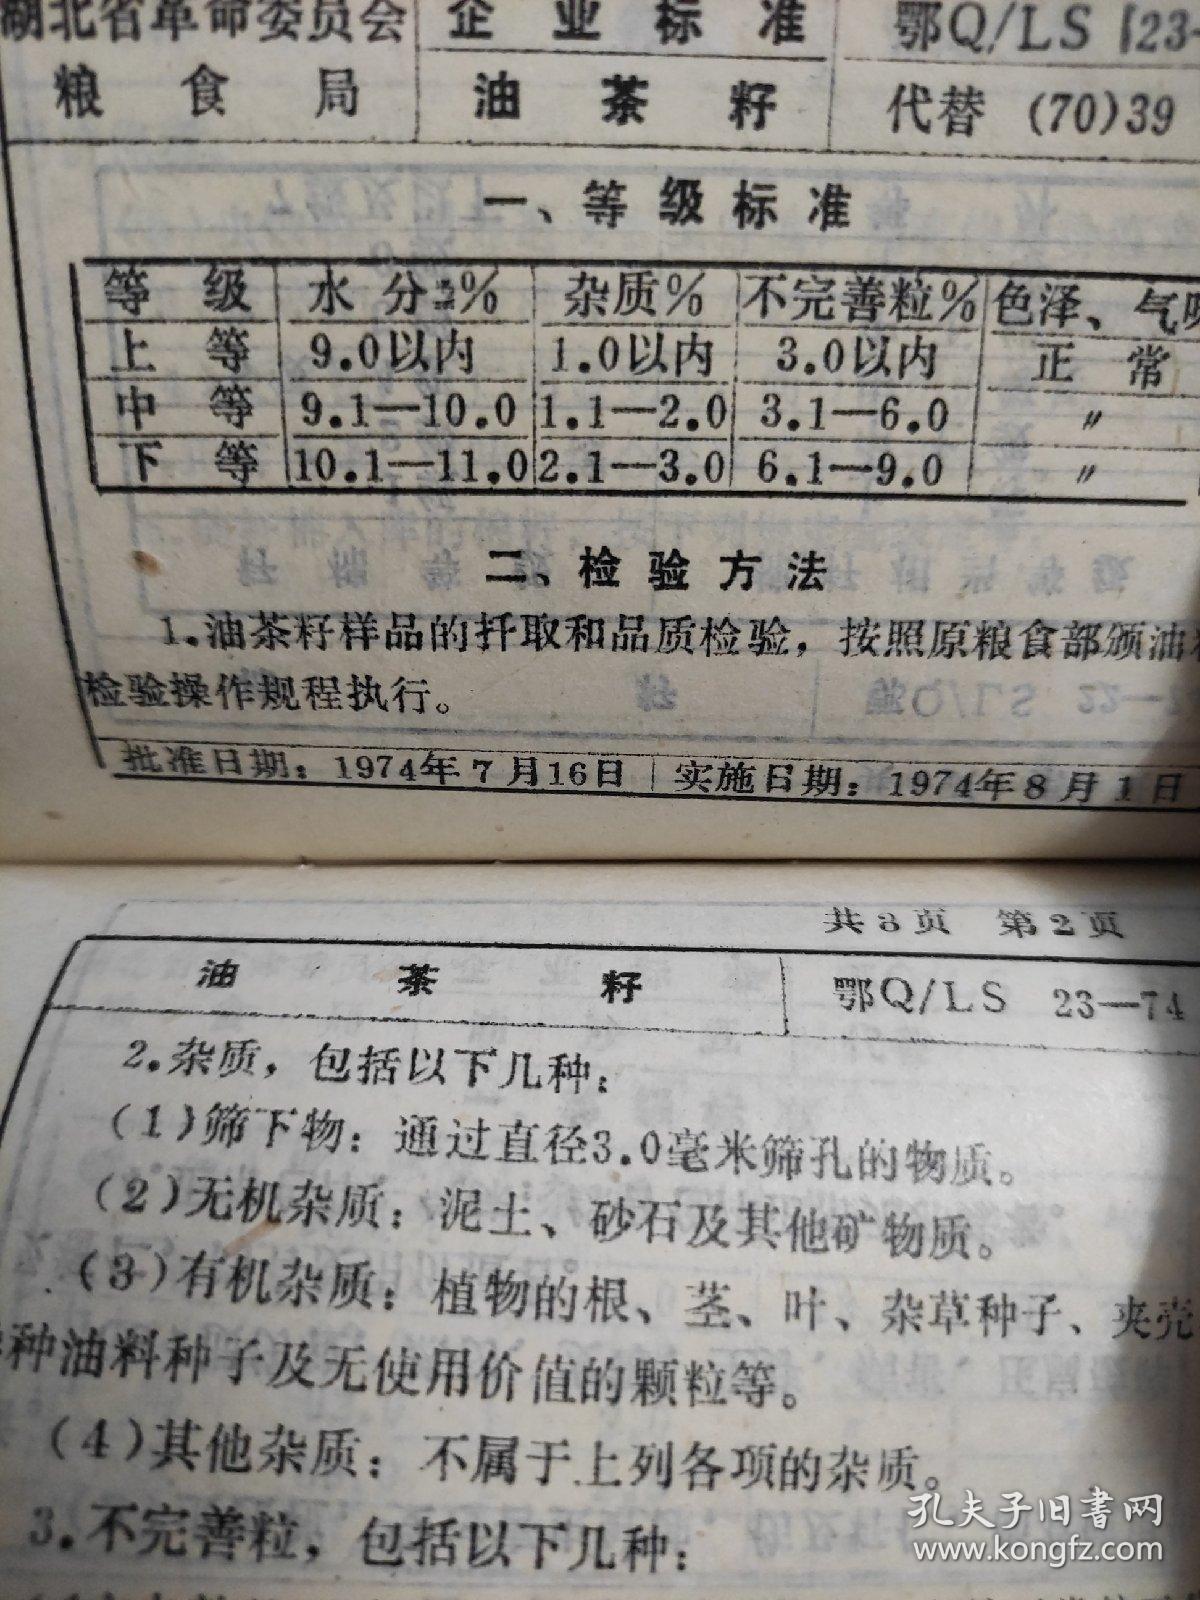 湖北省革命委员会
粮食局
企业标准
油茶籽
鄂Q/LS 23-
代替 (70)39
一、等级标准
等级 水分% 杂质% 不完善粒% 色泽、气味
上等 9.0以内 1.0以内 3.0以内 正常
中等 9.1—10.0 1.1—2.0 3.1—6.0 〃
下等 10.1—11.0 2.1—3.0 6.1—9.0 〃
二、检验方法
1.油茶籽样品的扦取和品质检验，按照原粮食部颁油
检验操作规程执行。
批准日期：1974年7月16日 实施日期：1974年8月1日
共3页 第2页
油茶籽 鄂Q/LS 23—74
2.杂质，包括以下几种：
(1)筛下物：通过直径3.0毫米筛孔的物质。
(2)无机杂质：泥土、砂石及其他矿物质。
(3)有机杂质：植物的根、茎、叶、杂草种子、夹壳
种油料种子及无使用价值的颗粒等。
(4)其他杂质：不属于上列各项的杂质。
3.不完善粒，包括以下几种：
孔夫子旧书网
www.kongfz.com